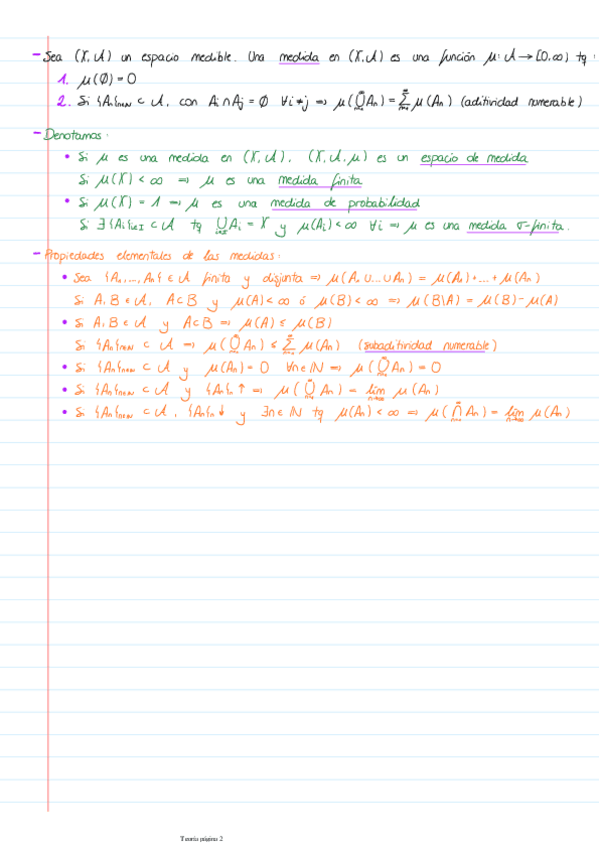 - Sea (X,𝒜) un espacio medible. Una medida en (X,𝒜) es una función μ: 𝒜 → [0,∞) tq:
1. μ(∅) = 0
2. Si {An}n∈ℕ ⊂ 𝒜, con Ai ∩ Aj = ∅ ∀i≠j ⇒ μ(⋃_{n=1}^∞ An) = ∑_{n=1}^∞ μ(An) (aditividad numerable)
- Denotamos:
• Si μ es una medida en (X,𝒜), (X,𝒜,μ) es un espacio de medida
Si μ(X) < ∞ ⇒ μ es una medida finita
• Si μ(X) = 1 ⇒ μ es una medida de probabilidad
Si ∃{Ai}i∈I ⊂ 𝒜 tq ⋃_{i∈I} Ai = X y μ(Ai) < ∞ ∀i ⇒ μ es una medida σ-finita.
- Propiedades elementales de las medidas:
• Sea {A1,..., An} ∈ 𝒜 finita y disjunta ⇒ μ(A1 ∪...∪ An) = μ(A1)+...+ μ(An)
Si A,B ∈ 𝒜, A⊂B y μ(A) < ∞ ó μ(B) < ∞ ⇒ μ(B\A) = μ(B) - μ(A)
• Si A,B ∈ 𝒜 y A⊂B ⇒ μ(A) ≤ μ(B)
Si {An}n∈ℕ ⊂ 𝒜 ⇒ μ(⋃_{n=1}^∞ An) ≤ ∑_{n=1}^∞ μ(An) (subaditividad numerable)
• Si {An}n∈ℕ ⊂ 𝒜 y μ(An) = 0 ∀n∈ℕ ⇒ μ(⋃_{n=1}^∞ An) = 0
• Si {An}n∈ℕ ⊂ 𝒜 y {An}n ↑ ⇒ μ(⋃_{n=1}^∞ An) = lim_{n→∞} μ(An)
• Si {An}n∈ℕ ⊂ 𝒜, {An}n ↓ y ∃n∈ℕ tq μ(An) < ∞ ⇒ μ(⋂_{n=1}^∞ An) = lim_{n→∞} μ(An)
Teoría página 2